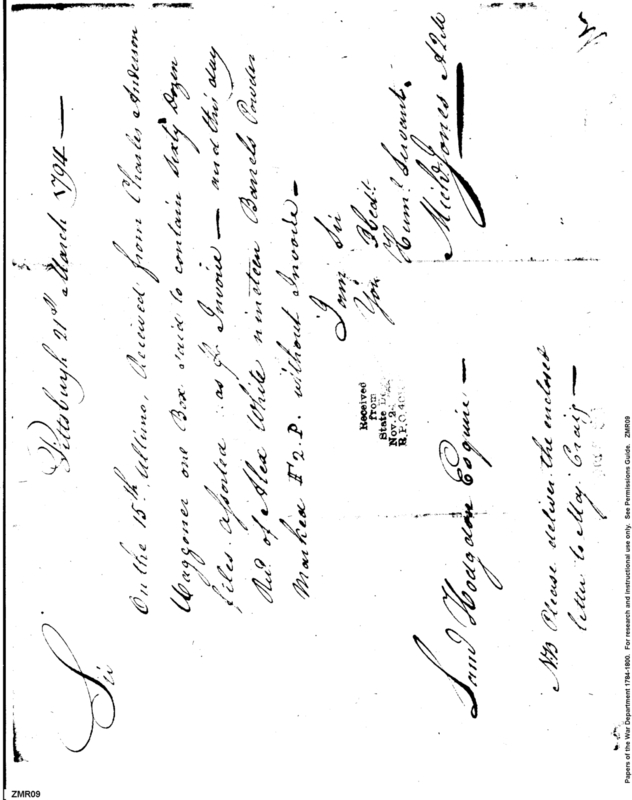 Pittsburgh 21st March 1794 —
Sir
On the 15th Ultimo, Received from Charles Anderson
Waggoner one Box said to contain Sixty Dozen
files assorted as P Invoice — and this day
Recd. of Alex White nineteen Barrels Powder
Marked F 2 P. without Invoice —
I am Sir
Your Obedt.
Huml. Servant.
Michl. Jones
Received
from
State
Nov. 2
Saml Hodgdon Esquire —
NB Please deliver the enclosed
letter to Maj. Craig —
Papers of the War Department 1784-1800. For research and instructional use only. See Permissions Guide. ZMR09
ZMR09